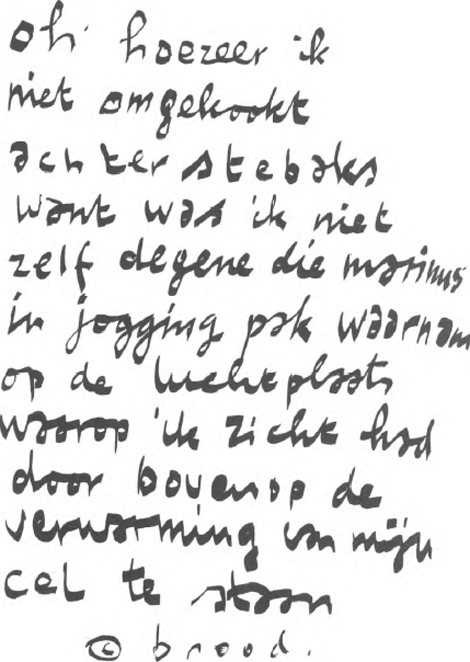 oh hoezeer ik
niet omgekookt
achter stebaks
want was ik niet
zelf degene die marinus
in jogging pak waarnam
op de luchtplaats
waarop ik zicht had
door bovenop de
verwarming van mijn
cel te staan
© brood.